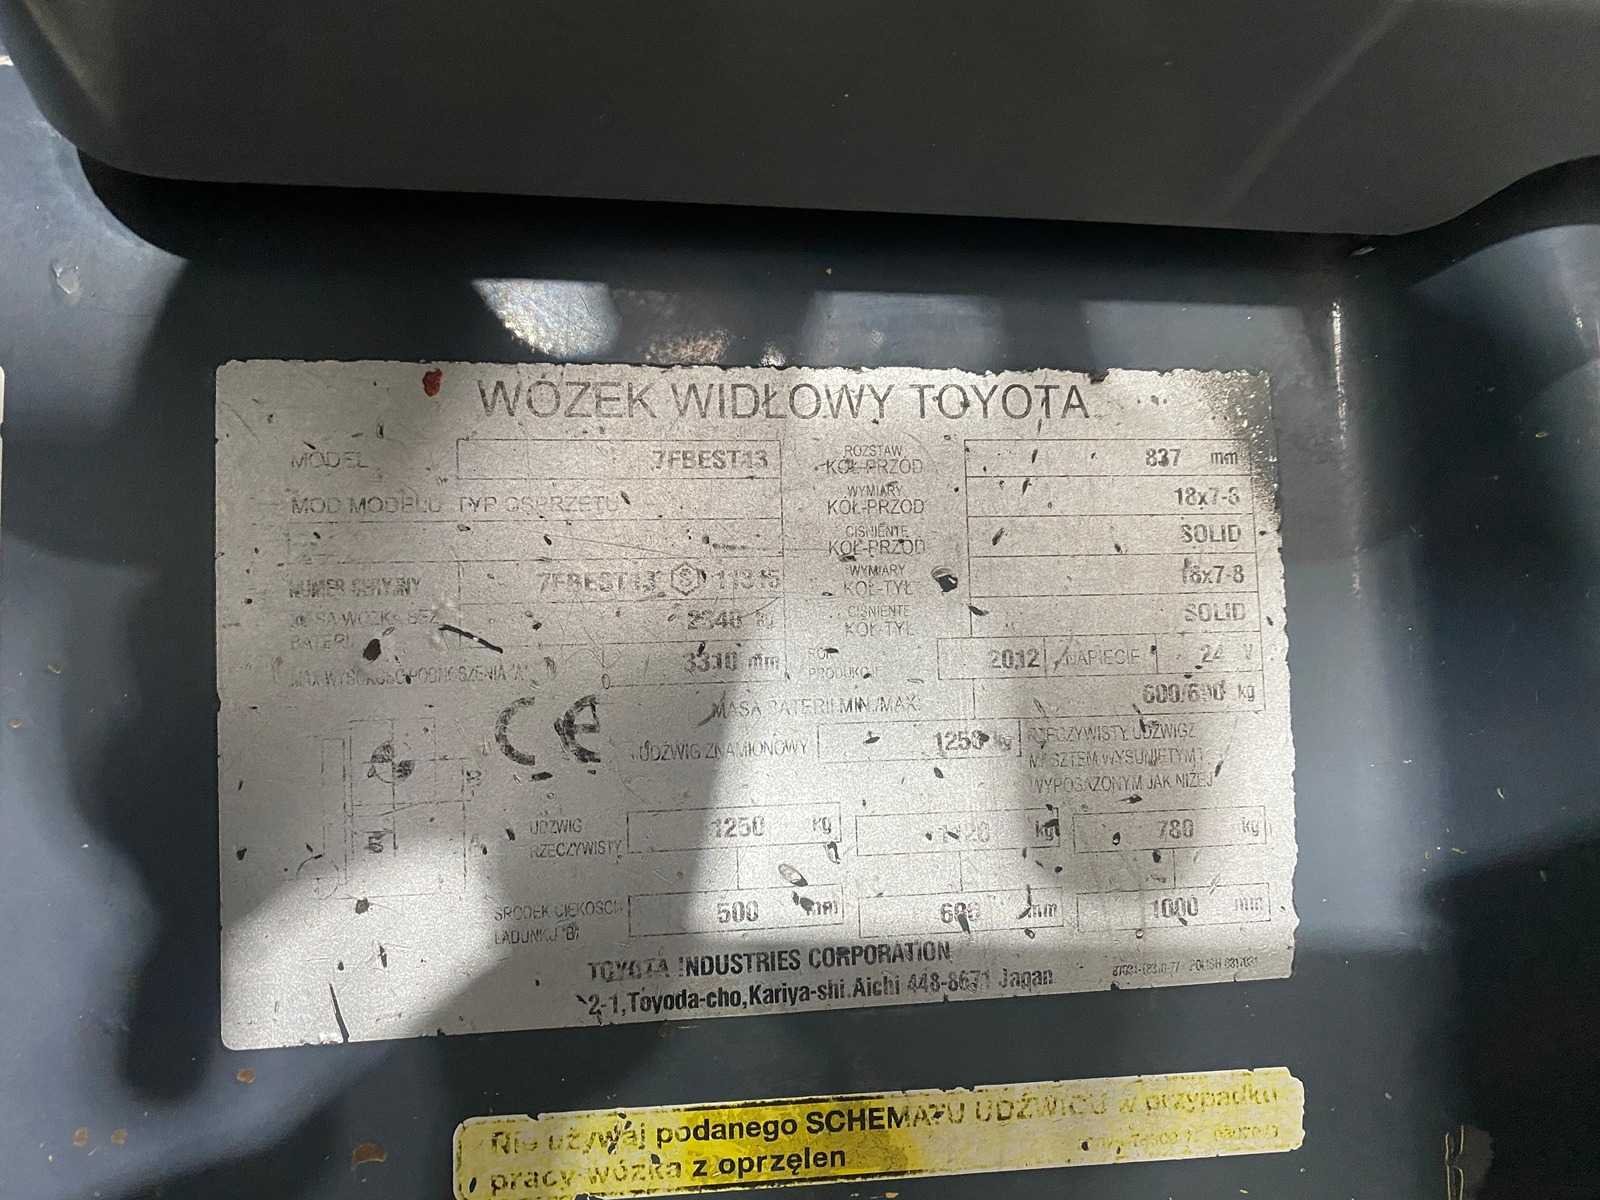 WÓZEK WIDŁOWY TOYOTA
MODEL 7FBEST13
MOD MODELU TYP OSPRZĘTU
NUMER SERYJNY 7FBEST13 S 11315
MASA WÓZKA BEZ BATERII 2340 kg
MAX WYSOKOŚĆ PODNOSZENIA "A" 3310 mm
ROZSTAW KÓŁ-PRZÓD 837 mm
WYMIARY KÓŁ-PRZÓD 18x7-8
CIŚNIENTE KÓŁ-PRZÓD SOLID
WYMIARY KÓŁ-TYŁ 18x7-8
CIŚNIENTE KÓŁ-TYŁ SOLID
ROK PRODUKCJI 2012 NAPIĘCIE 24 V
MASA BATERII MIN./MAX. 600/690 kg
CE
UDŹWIG ZNAMIONOWY 1250 kg
RZECZYWISTY UDŹWIG Z
MASZTEM WYSUNIĘTYM I
WYPOSAŻONYM JAK NIŻEJ
UDŹWIG RZECZYWISTY 1250 kg kg 780 kg
ŚRODEK CIĘŻKOŚCI ŁADUNKU "B" 500 mm 600 mm 1000 mm
TOYOTA INDUSTRIES CORPORATION
2-1,Toyoda-cho,Kariya-shi.Aichi 448-8671 Japan
POLISH
Nie używaj podanego SCHEMATU UDŹWIGU w przypadku
pracy wózka z oprzęlen